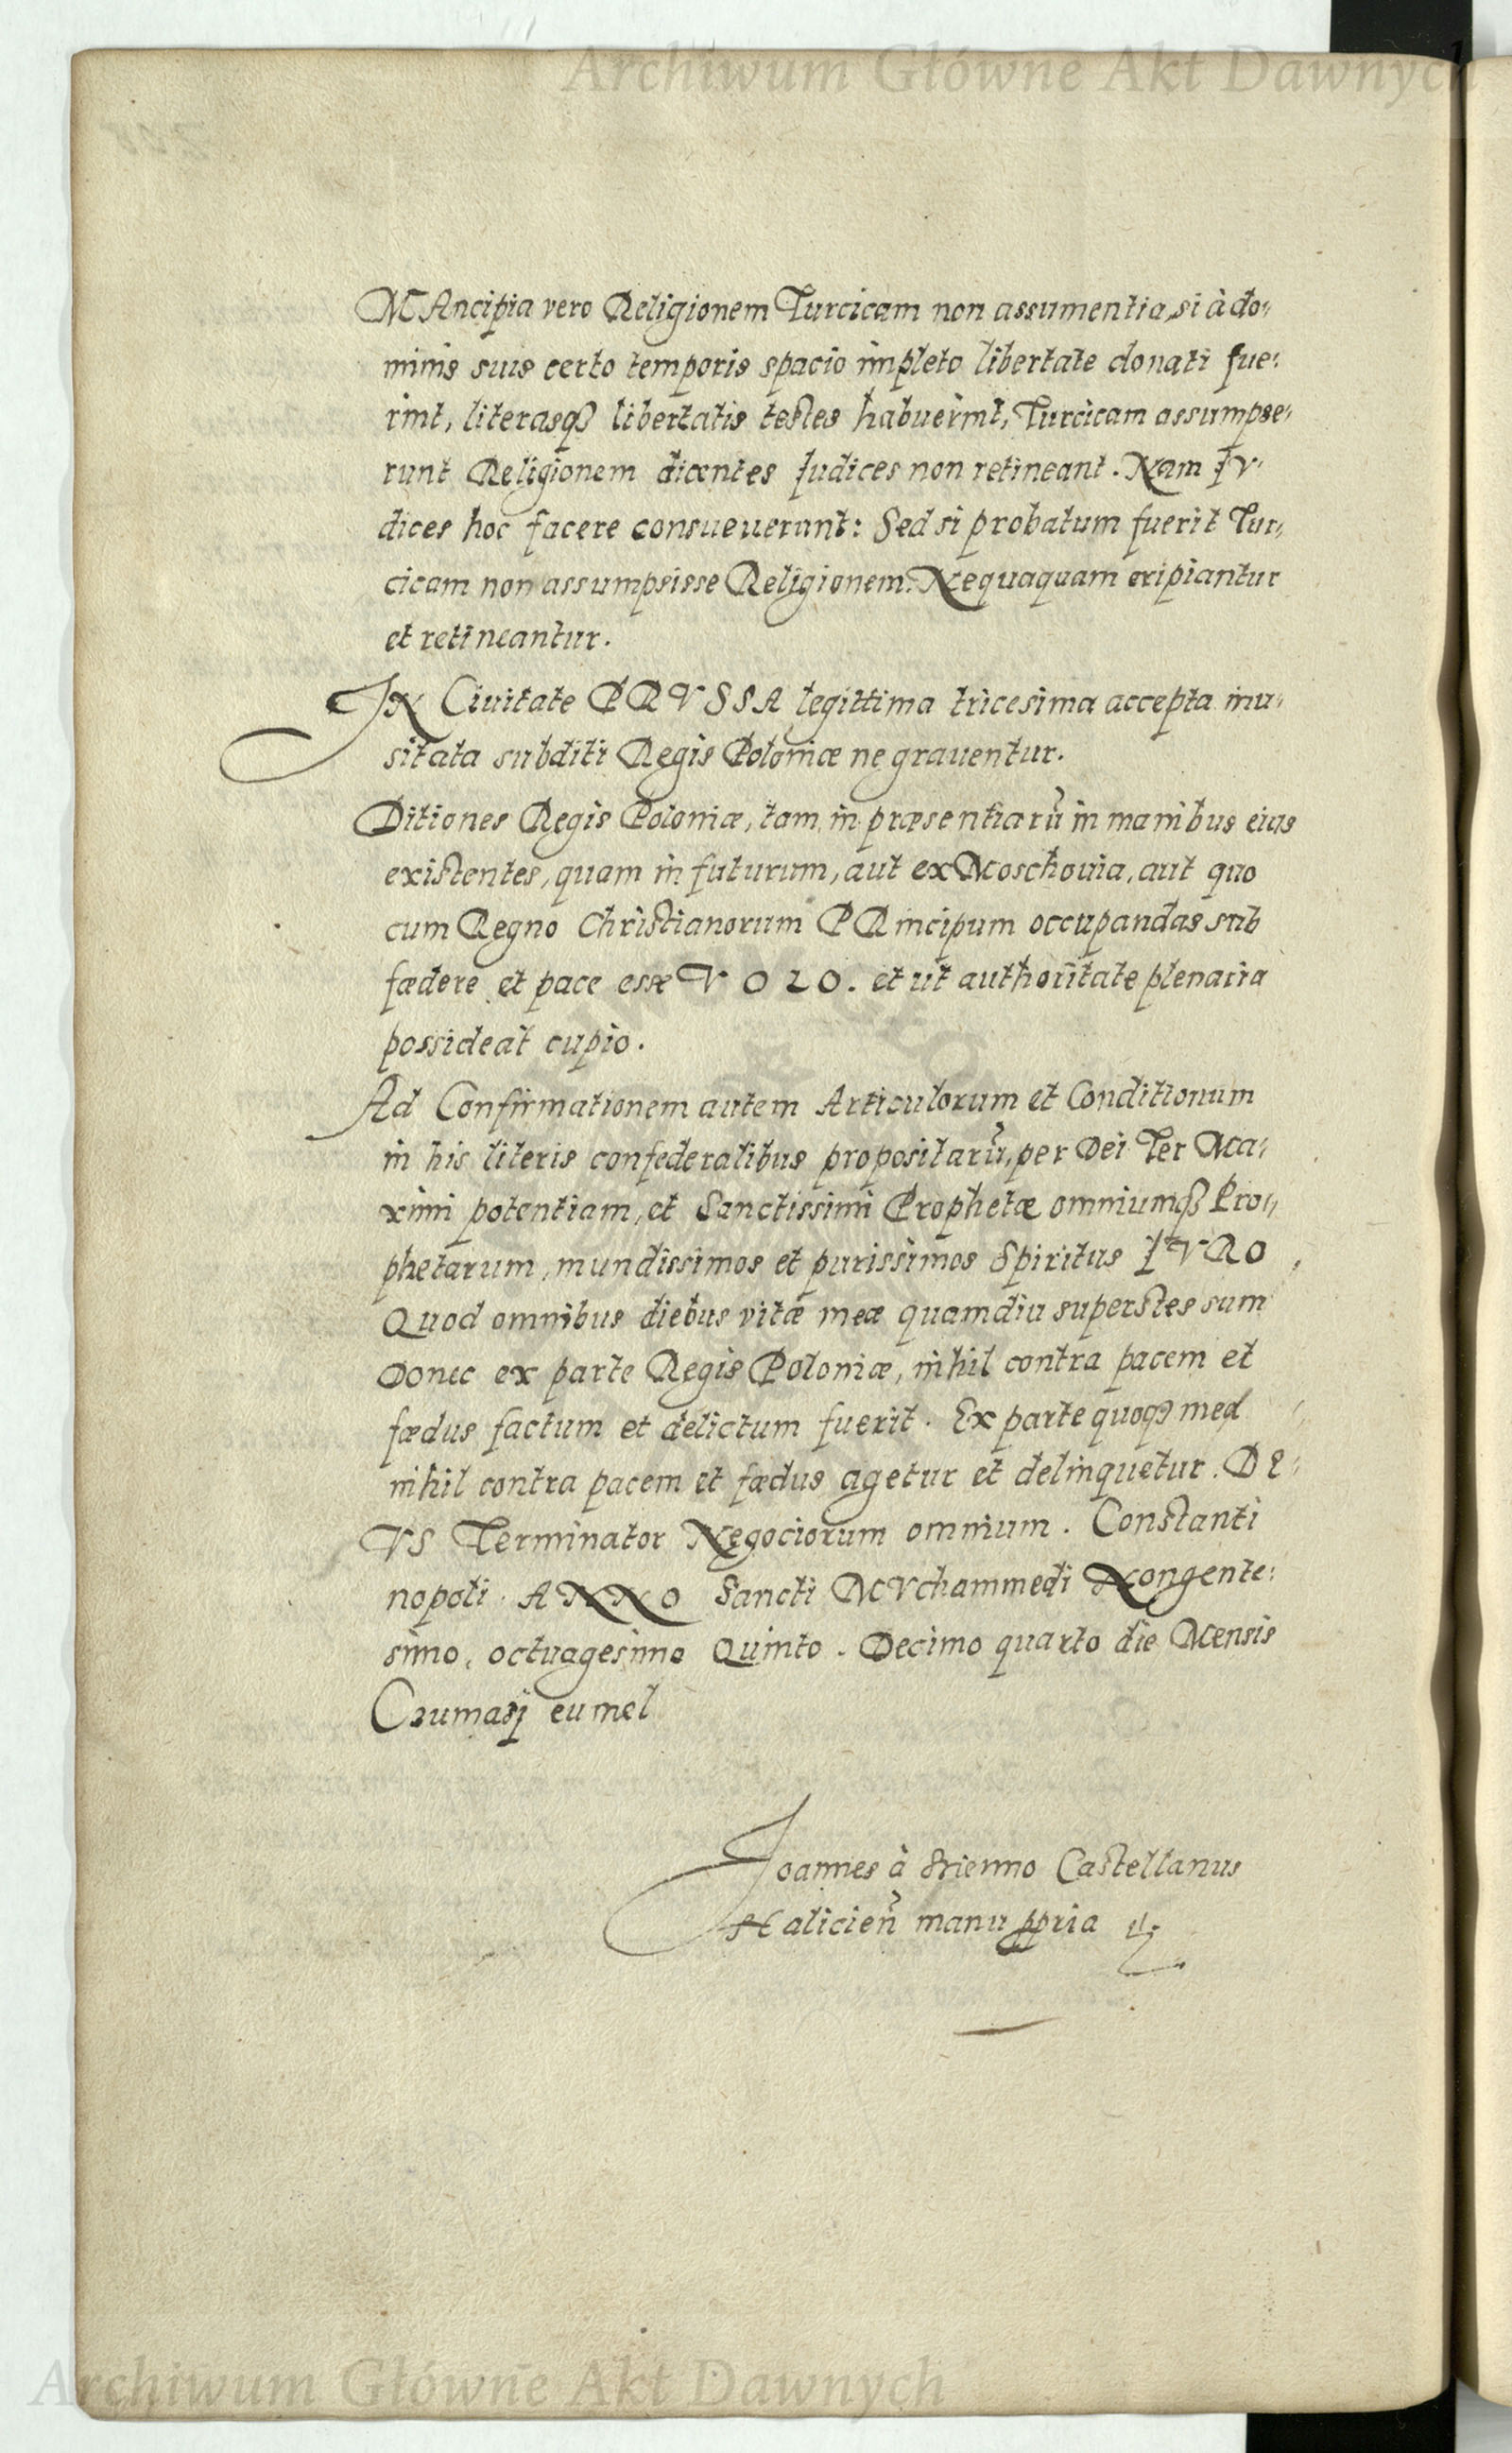 Archiwum Główne Akt Dawnych
MAncipia vero Religionem Turcicam non assumentia, si à do:
minis suis certo temporis spacio impleto libertate donati fue:
rint, literasqȝ libertatis testes habuerint, Turcicam assumpse:
runt Religionem dicentes Iudices non retineant. Nam IV:
dices hoc facere consueuerunt: Sed si probatum fuerit Tur:
cicam non assumpsisse Religionem. Nequaquam eripiantur
et retineantur.
IN Ciuitate PRVSSA legittima tricesima accepta inu:
sitata subditi Regis Poloniæ ne grauentur.
Ditiones Regis Poloniæ, tam in præsentiarũ in manibus eius
existentes, quam in futurum, aut ex Moschouia, aut quo
cum Regno Christianorum PRincipum occupandas sub
fædere et pace esse VOLO. et ut authoritate plenaria
possideat cupio.
Ad Confirmationem autem Articulorum et Conditionum
in his literis confederalibus propositarũ, per Dei Ter Ma:
ximi potentiam, et Sanctissimi Prophetæ omniumqȝ Pro:
phetarum, mundissimos et purissimos Spiritus IVRO,
Quod omnibus diebus vitæ meæ quamdiu superstes sum
Donec ex parte Regis Poloniæ, nihil contra pacem et
fædus factum et delictum fuerit. Ex parte quoqȝ mea
nihil contra pacem et fædus agetur et delinquetur. DE:
VS Terminator Negociorum omnium. Constanti
nopoli. ANNO Sancti MVchammedi Nongente:
simo, octuagesimo Quinto. Decimo quarto die Mensis
Czumasj eumel
Joannes à Sienno Castellanus
Halicieñ manu ppria
Archiwum Główne Akt Dawnych